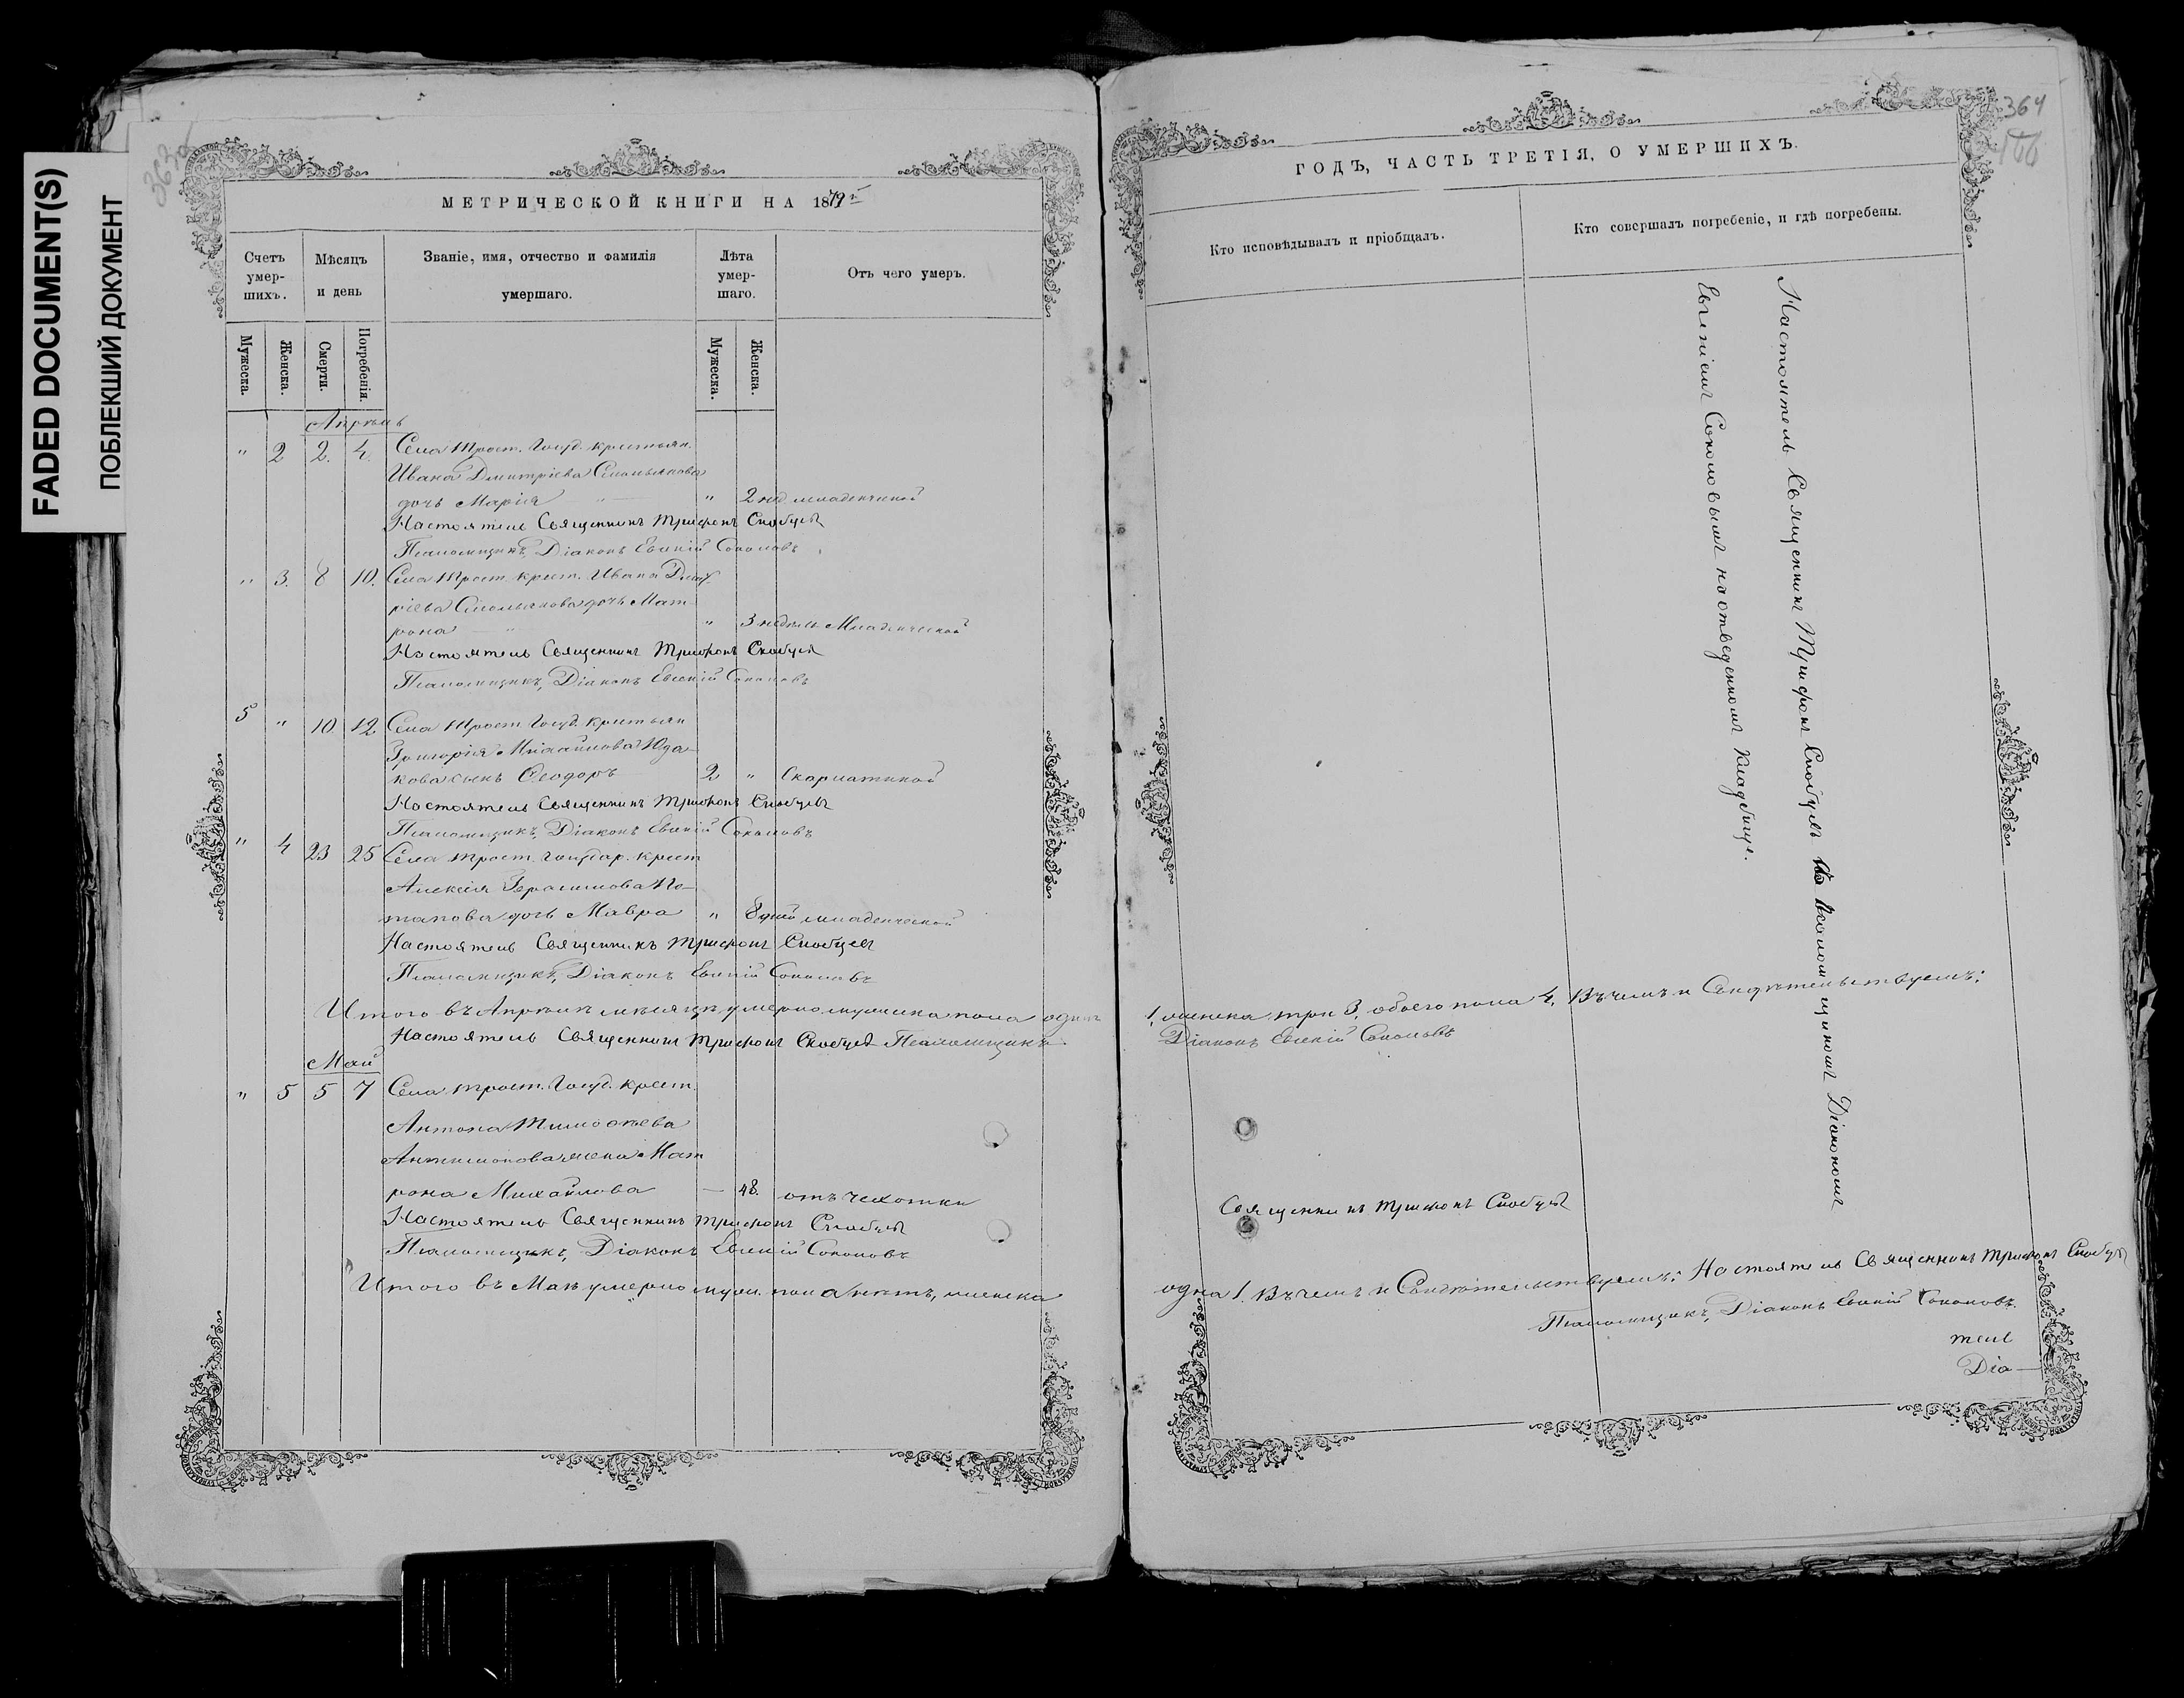 FADED DOCUMENT(S)
ПОБЛЕКШИЙ ДОКУМЕНТ
МЕТРИЧЕСКОЙ КНИГИ НА 1879 г.
Счетъ умер-шихъ.
Мѣсяцъ и день
Званіе, имя, отчество и фамилія умершаго.
Лѣта умер-шаго.
Отъ чего умеръ.
Мужеска.
Женска.
Смерти.
Погребенія.
Мужеска.
Женска.
Апрѣль
" 2 2. 4. Села Трост. Госуд. крестьян.
Ивана Дмитріева
дочь Марія " 2 нед. младенческой
Настоятель Священникъ Трифонъ
Псаломщикъ, Діаконъ Евгеній Соколовъ
" 3. 8 10. Села Трост. крест. Ивана Дмит
ріева дочь Мат
рона " 3 недѣли Младенческой
Настоятель Священникъ Трифонъ
Псаломщикъ, Діаконъ Евгеній Соколовъ
5 " 10 12 Села Трост. Госуд. крестьян
Григорія Михайлова Юда
кова сынъ Ѳеодоръ 2 " Скарлатиной
Настоятель Священникъ Трифонъ
Псаломщикъ, Діаконъ Евгеній Соколовъ
" 4 23 25 Села Трост. Государ. крест
Алексія Герасимова По
тапова дочь Мавра " 8 дней младенческой
Настоятель Священникъ Трифонъ
Псаломщикъ, Діаконъ Евгеній Соколовъ
Итого въ Апрѣлѣ мѣсяцѣ умерло мужеска пола одинъ
Настоятель Священникъ Трифонъ Псаломщикъ
Май
" 5 5 7 Села Трост. Госуд. крест.
Антона Тимоѳеева
жена Мат
рона Михайлова — 48. отъ чахотки
Настоятель Священникъ Трифонъ
Псаломщикъ, Діаконъ Евгеній Соколовъ
Итого въ Маѣ умерло муж. пола нѣтъ, женска
364
ГОДЪ, ЧАСТЬ ТРЕТІЯ, О УМЕРШИХЪ.
Кто исповѣдывалъ и пріобщалъ.
Кто совершалъ погребеніе, и гдѣ погребены.
Настоятель Священникъ Трифонъ Діакономъ
Евгеніемъ Соколовымъ на отведенномъ кладбищѣ.
1, женска три 3, обоего пола 4. Въ чемъ и Свидѣтельствуемъ:
Діаконъ Евгеній Соколовъ
Священникъ Трифонъ
одна 1. Въ чемъ и Свидѣтельствуемъ: Настоятель Священникъ Трифонъ
Псаломщикъ, Діаконъ Евгеній Соколовъ.
теле
Діа—